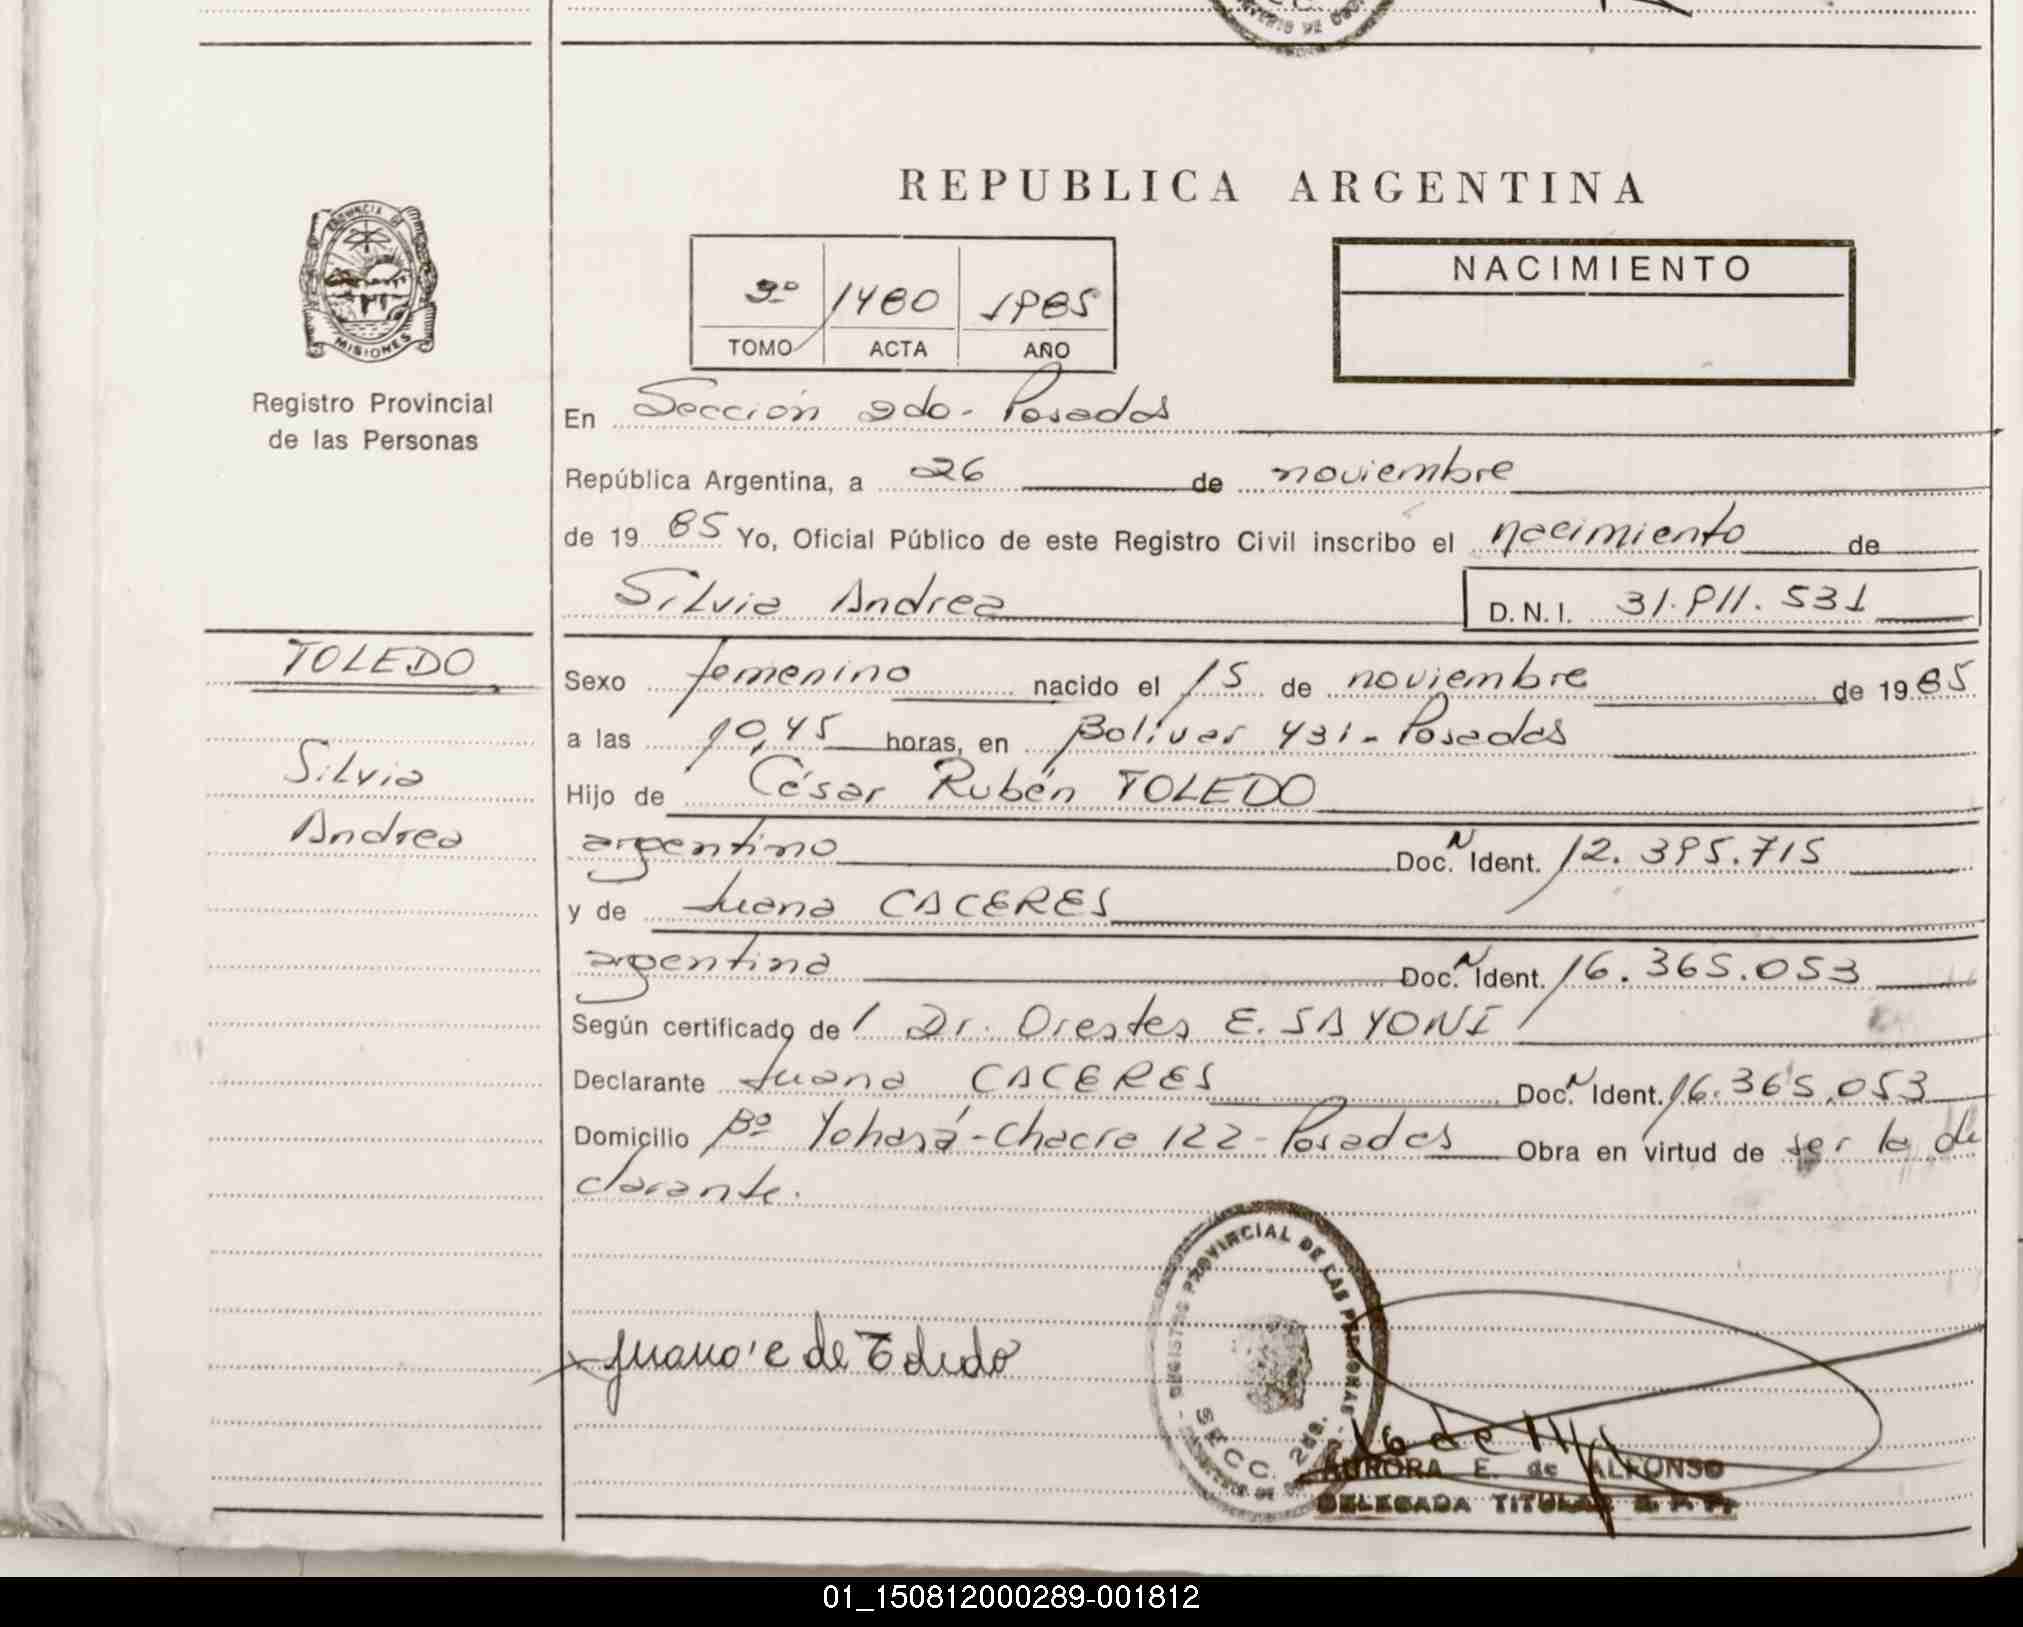 REPUBLICA ARGENTINA
PROVINCIA DE
MISIONES
Registro Provincial
de las Personas
3º 1480 1985
TOMO ACTA AÑO
NACIMIENTO
En Sección 2da. Posadas
República Argentina, a 26 de noviembre
de 1985 Yo, Oficial Público de este Registro Civil inscribo el nacimiento de
Silvia Andrea D.N.I. 31.911.531
TOLEDO
Silvia
Andrea
Sexo femenino nacido el 15 de noviembre de 1985
a las 10,45 horas, en Bolívar 431 - Posadas
Hijo de César Rubén TOLEDO
argentino Doc. N Ident. 12.395.715
y de Juana CACERES
argentina Doc. N Ident. 16.365.053
Según certificado de Dr. Orestes E. SAYONI
Declarante Juana CACERES Doc. N Ident. 16.365.053
Domicilio Bº Yohasá - Chacra 122 - Posadas Obra en virtud de ser la de
clarante.
REGISTRO PROVINCIAL DE LAS PERSONAS
SECC. 2da.
Juana C de Toledo
AURORA E. de ALFONSO
DELEGADA TITULAR R. P. P.
01_150812000289-001812